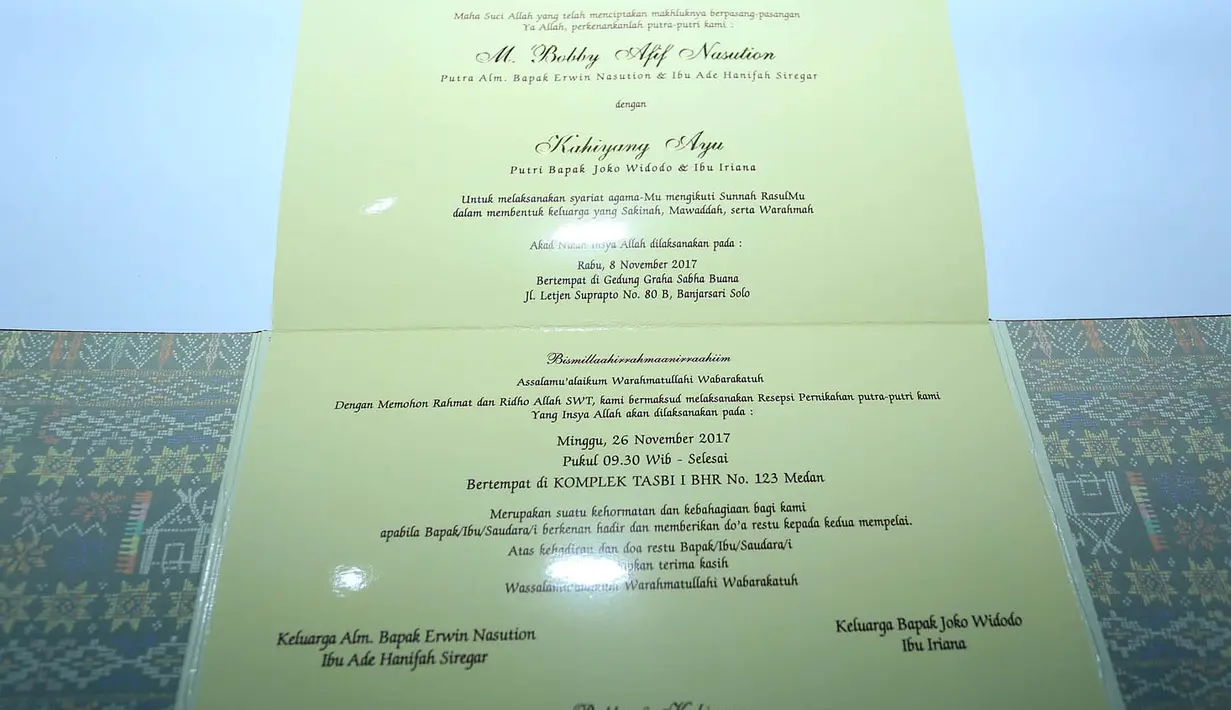 Maha Suci Allah yang telah menciptakan makhluknya berpasang-pasangan
Ya Allah, perkenankanlah putra-putri kami :
M. Bobby Afif Nasution
Putra Alm. Bapak Erwin Nasution & Ibu Ade Hanifah Siregar
dengan
Kahiyang Ayu
Putri Bapak Joko Widodo & Ibu Iriana
Untuk melaksanakan syariat agama-Mu mengikuti Sunnah RasulMu
dalam membentuk keluarga yang Sakinah, Mawaddah, serta Warahmah
Akad Nikah Insya Allah dilaksanakan pada :
Rabu, 8 November 2017
Bertempat di Gedung Graha Sabha Buana
Jl. Letjen Suprapto No. 80 B, Banjarsari Solo
Bismillaahirrahmaanirraahiim
Assalamu'alaikum Warahmatullahi Wabarakatuh
Dengan Memohon Rahmat dan Ridho Allah SWT, kami bermaksud melaksanakan Resepsi Pernikahan putra-putri kami
Yang Insya Allah akan dilaksanakan pada :
Minggu, 26 November 2017
Pukul 09.30 Wib - Selesai
Bertempat di KOMPLEK TASBI I BHR No. 123 Medan
Merupakan suatu kehormatan dan kebahagiaan bagi kami
apabila Bapak/Ibu/Saudara/i berkenan hadir dan memberikan do'a restu kepada kedua mempelai.
Atas kehadiran dan doa restu Bapak/Ibu/Saudara/i
terima kasih
Warahmatullahi Wabarakatuh
Keluarga Alm. Bapak Erwin Nasution
Ibu Ade Hanifah Siregar
Keluarga Bapak Joko Widodo
Ibu Iriana